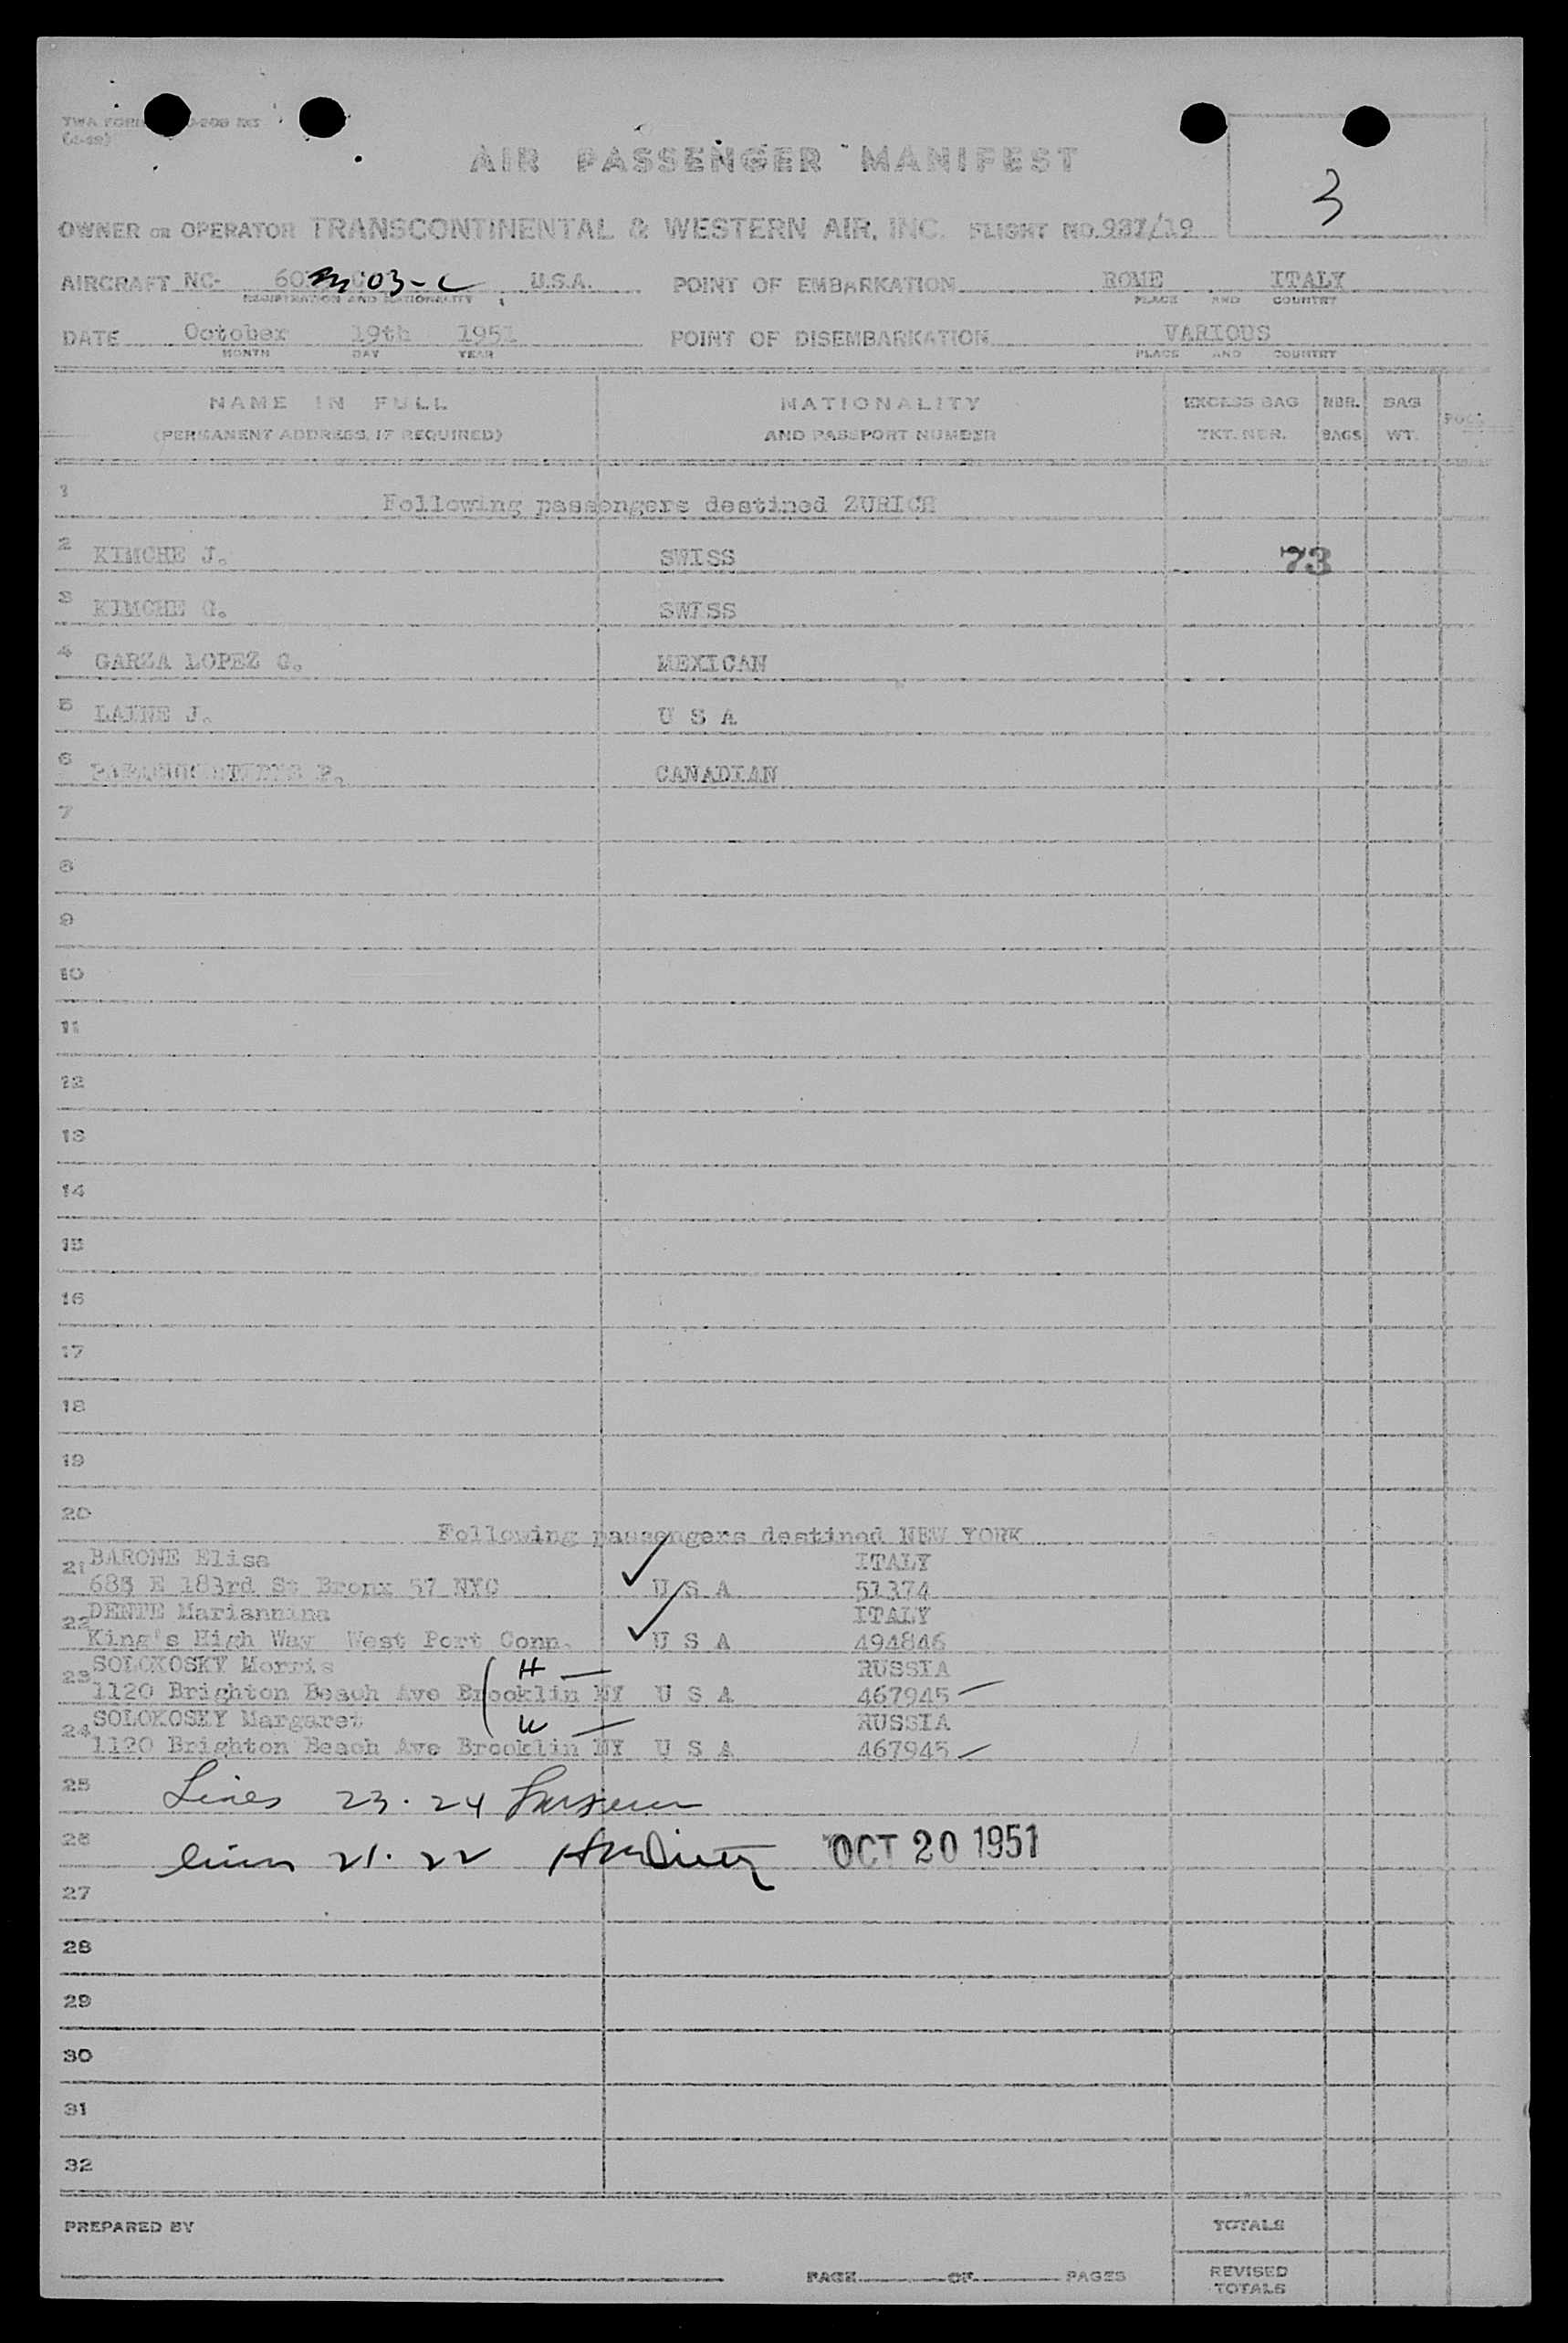 TWA FORM
AIR PASSENGER MANIFEST
3
OWNER OR OPERATOR TRANSCONTINENTAL & WESTERN AIR, INC. FLIGHT NO. 987/19
AIRCRAFT NC- 60 03-C U.S.A. POINT OF EMBARKATION ROME ITALY
REGISTRATION AND NATIONALITY PLACE AND COUNTRY
DATE October 19th 1951 POINT OF DISEMBARKATION VARIOUS
MONTH DAY YEAR PLACE AND COUNTRY
NAME IN FULL NATIONALITY EXCESS BAG NBR. BAG
(PERMANENT ADDRESS, IF REQUIRED) AND PASSPORT NUMBER TKT. NBR. BAGS WT.
1 Following passengers destined ZURICH
2 KIMCHE J. SWISS 73
3 KIMCHE G. SWISS
4 GARZA LOPEZ G. MEXICAN
5 LAINE J. U S A
6 P. CANADIAN
7
8
9
10
11
12
13
14
15
16
17
18
19
20 Following passengers destined NEW YORK
21 BARONE Elisa ITALY
683 E 183rd St Bronx 57 NYC U S A 51374
22 DENTE Mariannina ITALY
King's High Way West Port Conn. U S A 494846
23 SOLOKOSKY Morris H RUSSIA
1120 Brighton Beach Ave Brooklin NY U S A 467945
24 SOLOKOSKY Margaret W RUSSIA
1120 Brighton Beach Ave Brooklin NY U S A 467945
25 Lines 23.24
26 lines 21.22 OCT 20 1951
27
28
29
30
31
32
PREPARED BY TOTALS
PAGE OF PAGES REVISED TOTALS